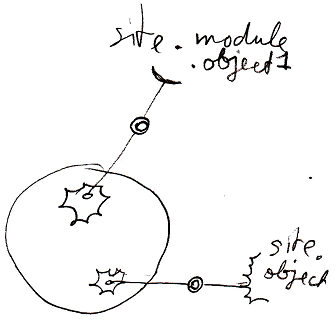 site. module
.object1
site.
object